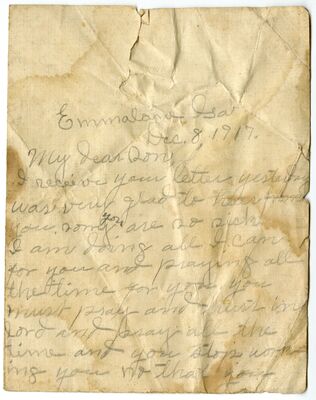 Emmalane Ga
Dec, 8, 1917.
My dear Son,
I receive your letter yesterday
was very glad to hear from
you, sorry you are so sick
I am doing all I can
for you and praying all
the time for you you
must pray and trust in
lord and pray all the
time and you stop worr
ing you no that you